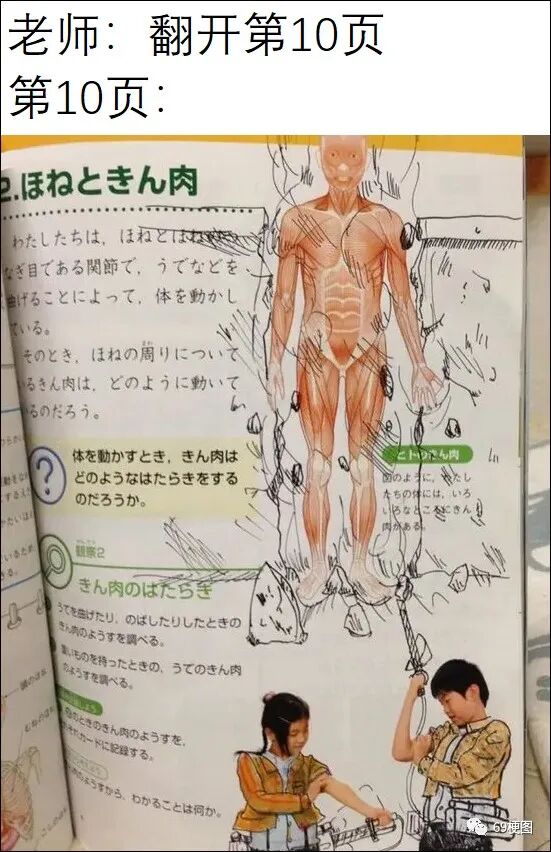 老师：翻开第10页
第10页：
2.ほねときん肉
わたしたちは，ほねとほねの
なぎ目である関節で，うでなどを
曲げることによって，体を動かし
ている。
そのとき，ほねの周りについて
いるきん肉は，どのように動いて
いるのだろう。
?
体を動かすとき，きん肉は
どのようなはたらきをする
のだろうか。
ヒトのきん肉
図のように，わたし
たちの体には，いろ
いろなところにきん
肉がある。
観察2
きん肉のはたらき
うでを曲げたり，のばしたりしたときの
きん肉のようすを調べる。
重いものを持ったときの，うでのきん肉
のようすを調べる。
のときのきん肉のようすを，
カードに記録する。
のようすから，わかることは何か。
69梗图